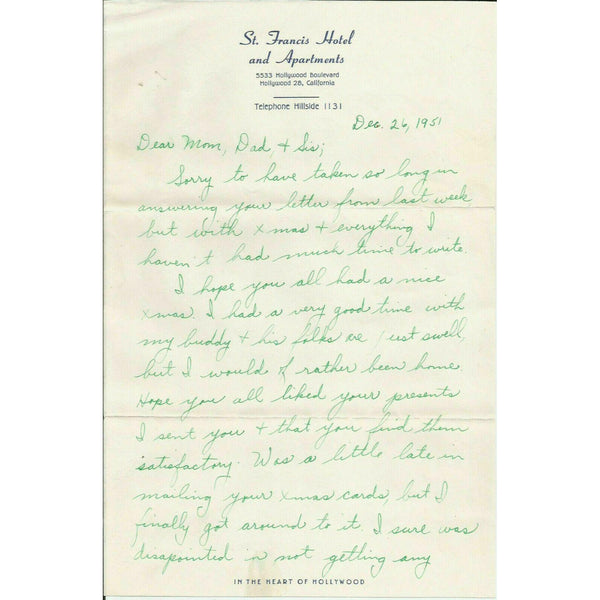 St. Francis Hotel
and Apartments
5533 Hollywood Boulevard
Hollywood 28, California
Telephone Hillside 1131
Dec. 26, 1951
Dear Mom, Dad, + Sis;
Sorry to have taken so long in
answering your letter from last week
but with Xmas + everything I
haven't had much time to write.
I hope you all had a nice
Xmas. I had a very good time with
my buddy + his folks are just swell,
but I would of rather been home.
Hope you all liked your presents
I sent you + that you find them
satisfactory. Was a little late in
mailing your Xmas cards, but I
finally got around to it. I sure was
disapointed in not getting any
IN THE HEART OF HOLLYWOOD